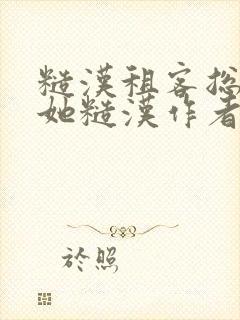 糙漢租客撚
她糙漢作者
於照